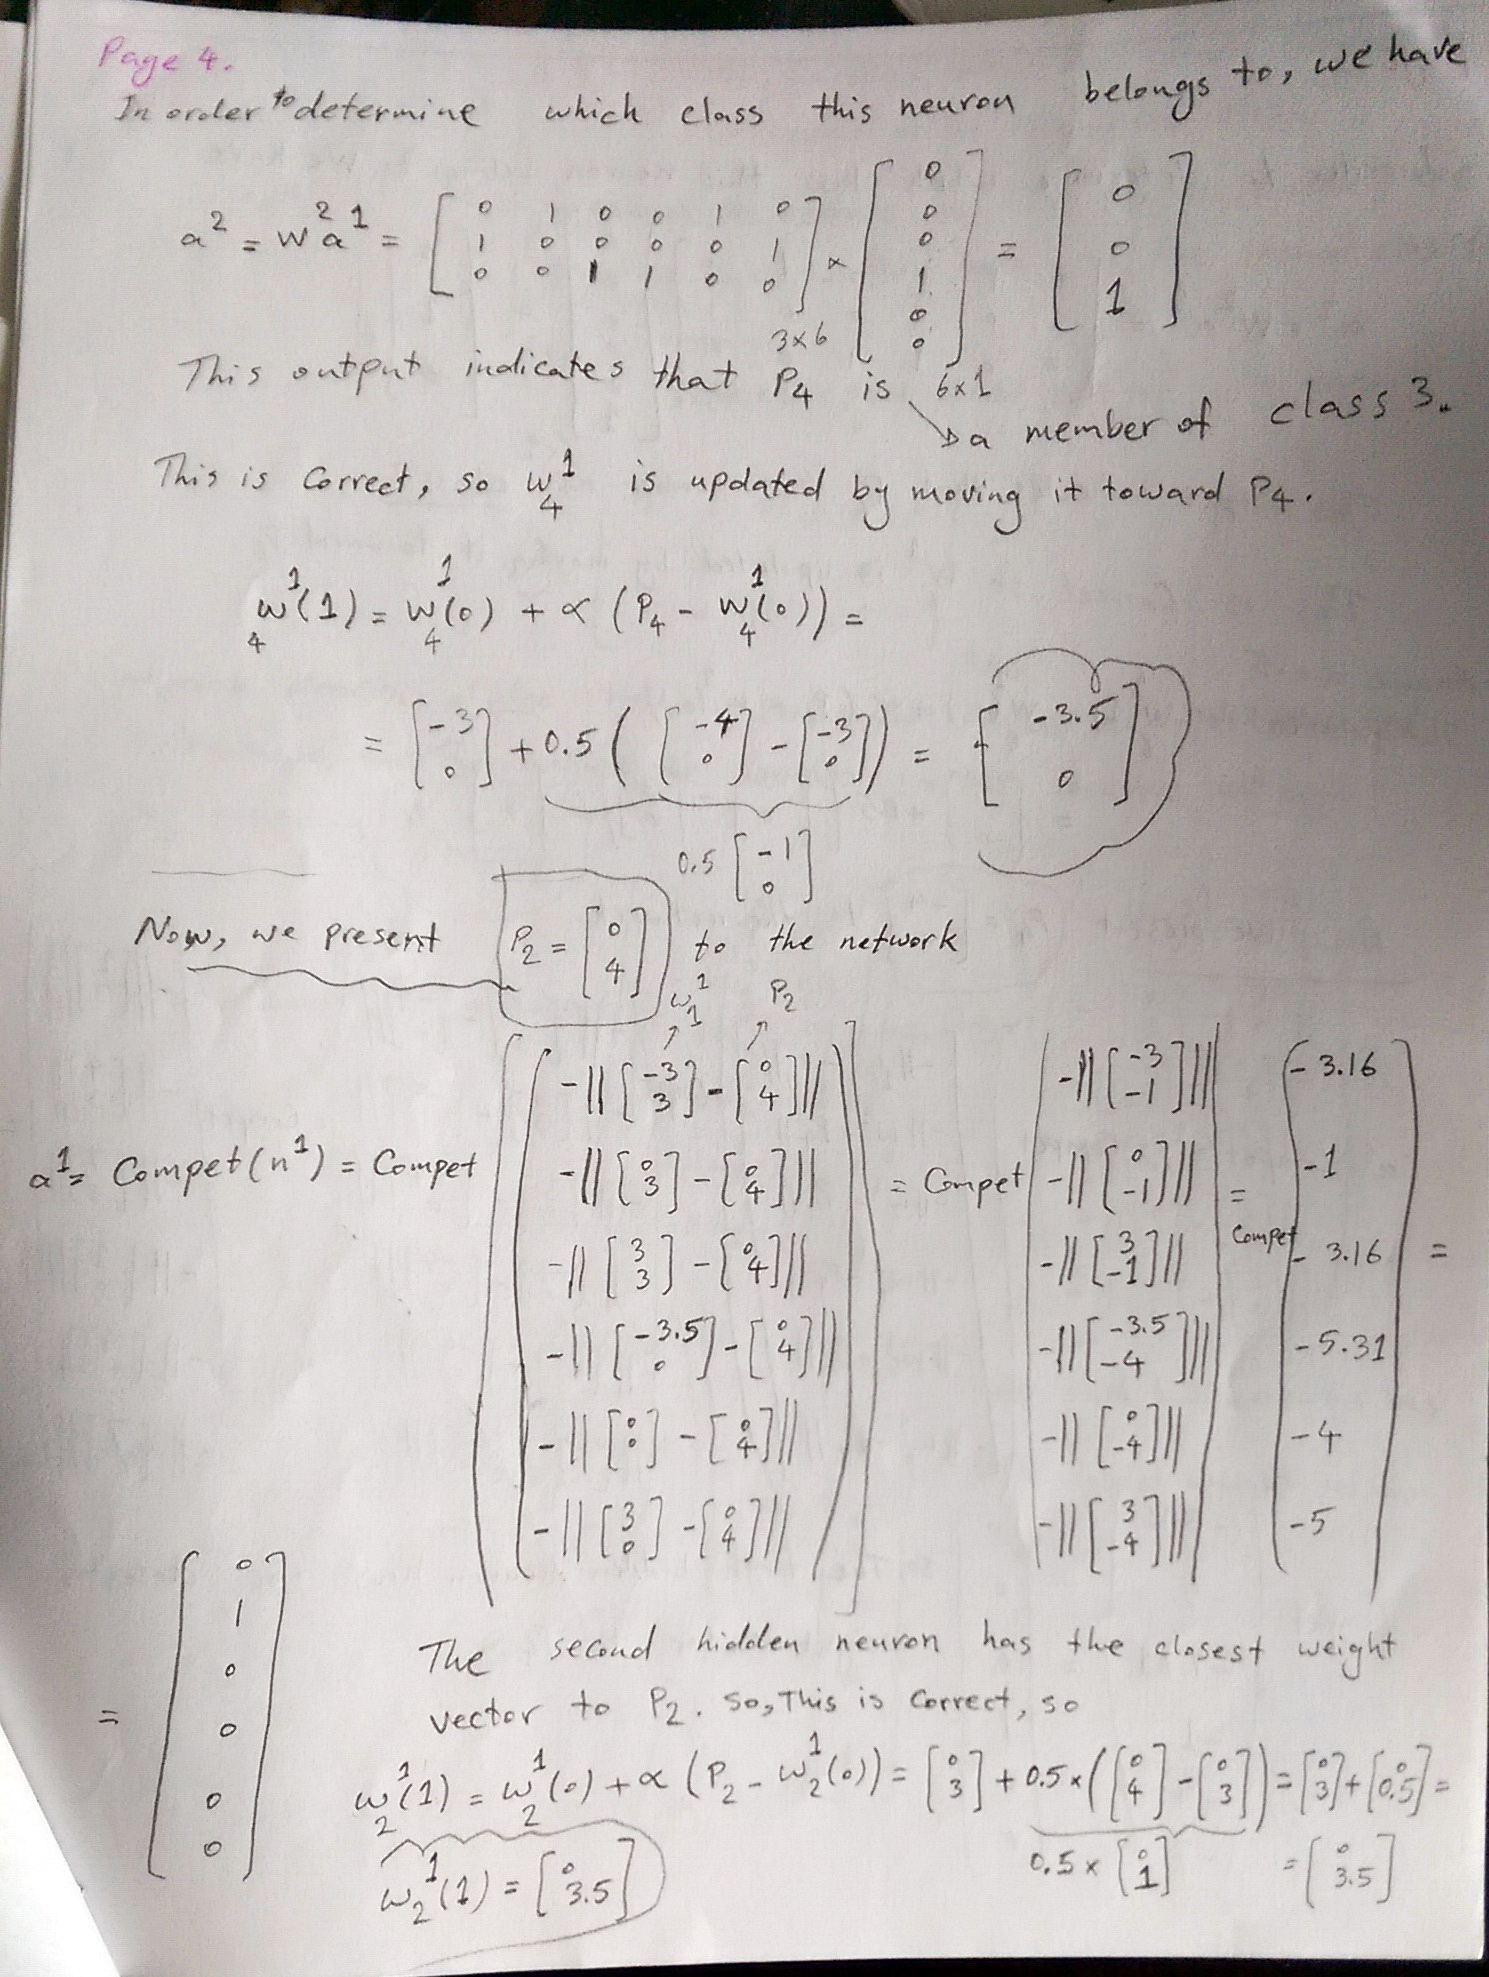 Page 4.
In order to determine which class this neuron belongs to, we have
a² = w² a¹ = [0 1 0 0 1 0; 1 0 0 0 0 1; 0 0 1 1 0 0] 3×6 × [0; 0; 0; 1; 0; 0] 6×1 = [0; 0; 1]
This output indicates that P₄ is → a member of class 3.
This is correct, so w₄¹ is updated by moving it toward P₄.
₄w¹(1) = w₄¹(0) + α (P₄ - w₄¹(0)) =
= [-3; 0] + 0.5 ( [-4; 0] - [-3; 0] ) = [-3.5; 0]
0.5 [-1; 0]
Now, we present P₂ = [0; 4] to the network
w₁¹ P₂
a¹ = Compet(n¹) = Compet [ -||[-3; 3] - [0; 4]||
-||[0; 3] - [0; 4]||
-||[3; 3] - [0; 4]||
-||[-3.5; 0] - [0; 4]||
-||[0; 0] - [0; 4]||
-||[3; 0] - [0; 4]|| ]
= Compet [ -||[-3; -1]||
-||[0; -1]||
-||[3; -1]||
-||[-3.5; -4]||
-||[0; -4]||
-||[3; -4]|| ]
= Compet [ -3.16
-1
-3.16
-5.31
-4
-5 ] =
= [0; 1; 0; 0; 0; 0]
The second hidden neuron has the closest weight
vector to P₂. So, This is Correct, so
w₂¹(1) = w₂¹(0) + α (P₂ - w₂¹(0)) = [0; 3] + 0.5 × ([0; 4] - [0; 3]) = [0; 3] + [0; 0.5] =
0.5 × [0; 1] = [0; 3.5]
w₂¹(1) = [0; 3.5]